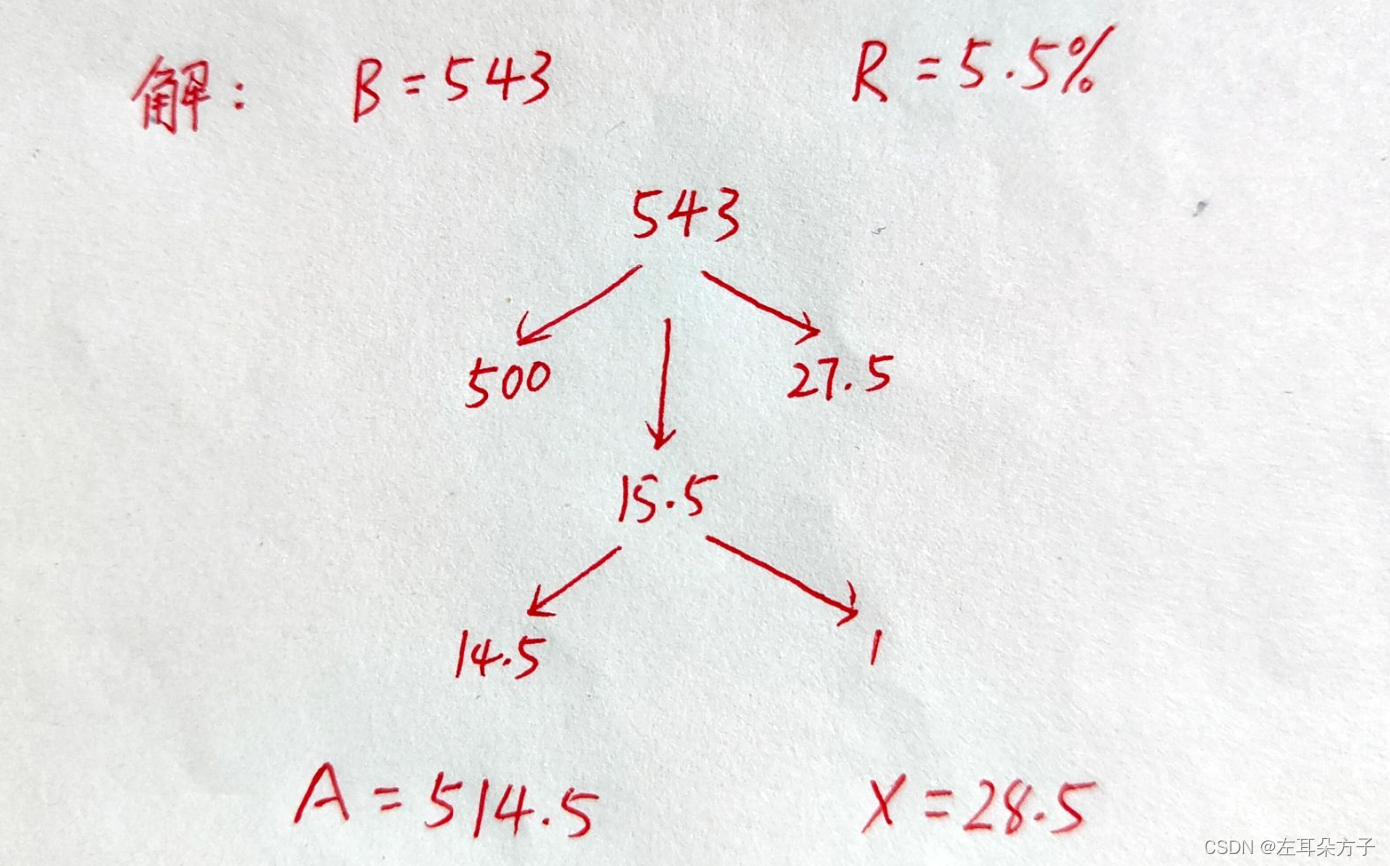 解: B=543 R=5.5%
543
500 27.5
15.5
14.5 1
A=514.5 X=28.5
CSDN @左耳朵方子